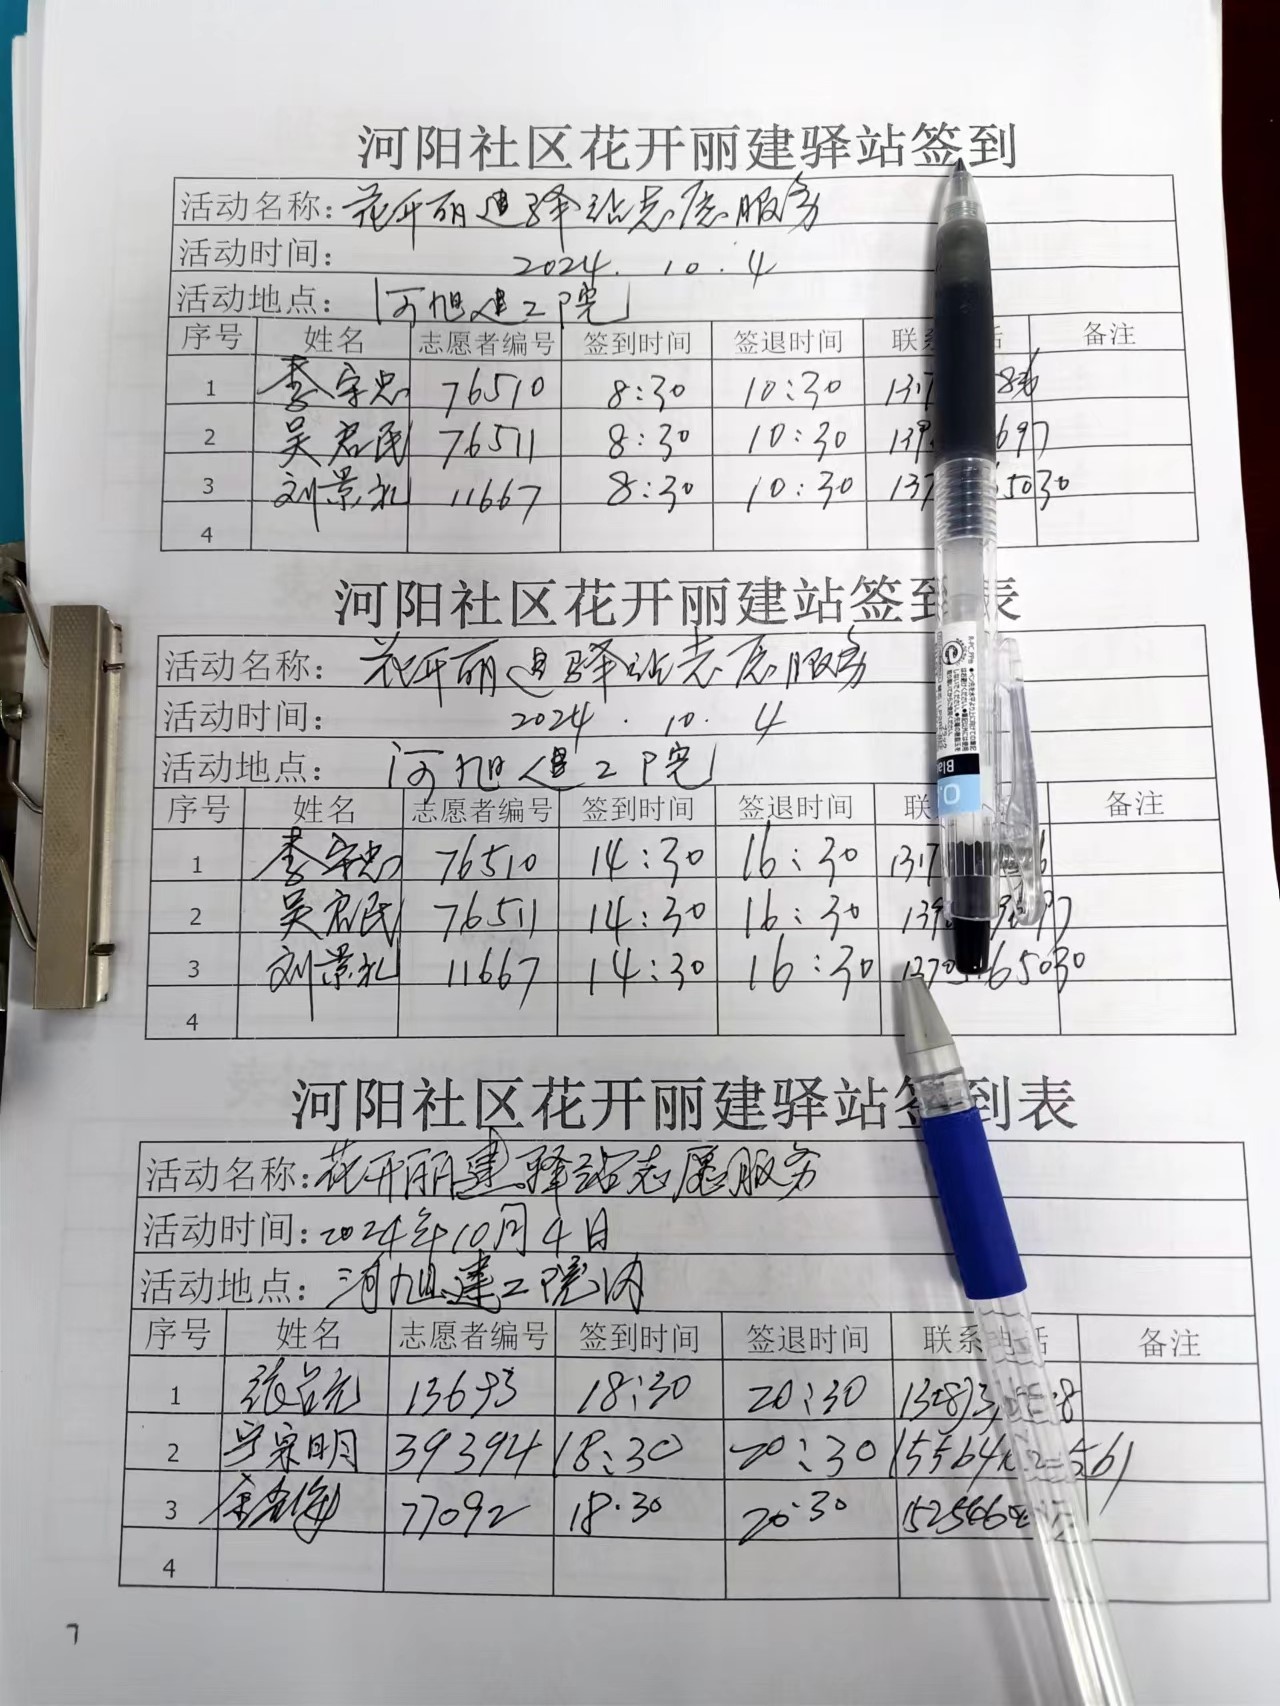 河阳社区花开丽建驿站签到
活动名称: 花开丽建驿站志愿服务
活动时间: 2024.10.4
活动地点: 河旭建工院
序号 姓名 志愿者编号 签到时间 签退时间 联 话 备注
1 李宗忠 76510 8:30 10:30 1317
2 吴君民 76511 8:30 10:30 139 697
3 刘景礼 11667 8:30 10:30 137 5030
4
河阳社区花开丽建站签到表
活动名称: 花开丽建驿站志愿服务
活动时间: 2024.10.4
活动地点: 河旭建工院
序号 姓名 志愿者编号 签到时间 签退时间 联 备注
1 李宗忠 76510 14:30 16:30 1317 6
2 吴君民 76511 14:30 16:30 139 97
3 刘景礼 11667 14:30 16:30 1370 65030
4
河阳社区花开丽建驿站签到表
活动名称: 花开丽建驿站志愿服务
活动时间: 2024年10月4日
活动地点: 河旭建工院内
序号 姓名 志愿者编号 签到时间 签退时间 联系电话 备注
1 13693 18:30 20:30
2 39394 18:30 20:30 15564 561
3 77092 18:30 20:30
4
7